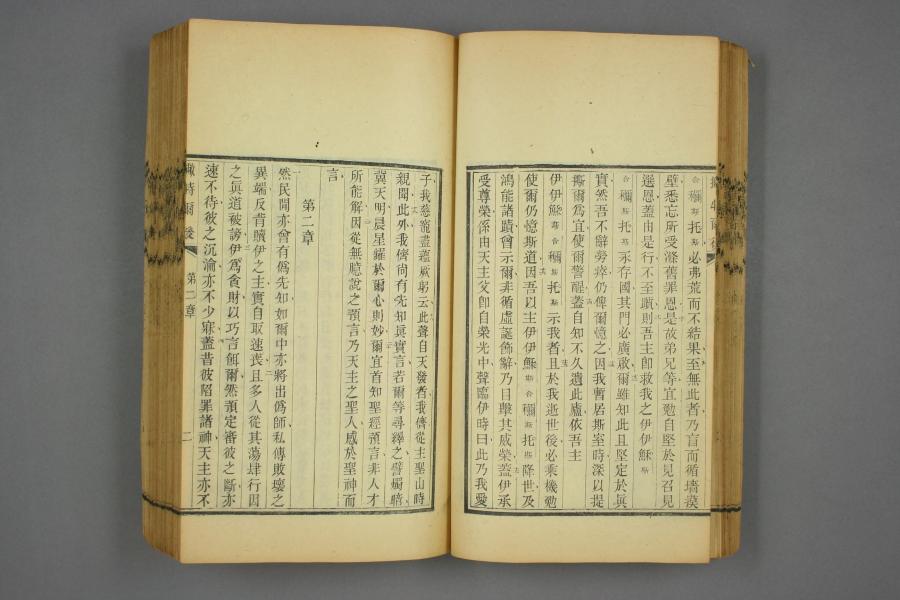 合穪斯托斯必弗荒而不結果至無此者乃盲而循墻摸
壁悉忘所受滌舊罪恩是故弟兄等宜勉自堅於見召見
選恩蓋由是行不至躓則吾主卽救我之伊伊穌斯
合穪斯托斯永存國其門必廣啟爾雖知此且堅定於眞
實然吾不辭勞瘁仍俾爾憶之因我暫居斯室時深以提
撕爾爲宜使爾警醒蓋自知不久遺此廬依吾主
伊伊穌斯合穪斯托斯示我者且於我逝世後必乘機勉
使爾仍憶斯道因吾以主伊伊穌斯合穪斯托斯降世及
鴻能諸蹟曾示爾非循虛誕飾辭乃目擊其威榮蓋伊承
受尊榮係由天主父卽自榮光中聲臨伊時曰此乃我愛
子我慈寵盡蘊厥躬云此聲自天發者我儕從主聖山時
親聞此外我儕尙有先知眞實言若爾等尋繹之譬燭暗
冀天明晨星耀於爾心則妙爾宜首知聖經預言非人才
所能解因從無臆說之預言乃天主之聖人感於聖神而
言
第二章
然民閒亦曾有僞先知如爾中亦將出僞師私傳敗壞之
異端反背贖伊之主實自取速喪且多人從其蕩肆行因
之眞道被謗伊爲貪財以巧言餌爾然預定審彼之斷亦
速不待彼之沉淪亦不少寐蓋昔彼陷罪諸神天主亦不
第二章
二